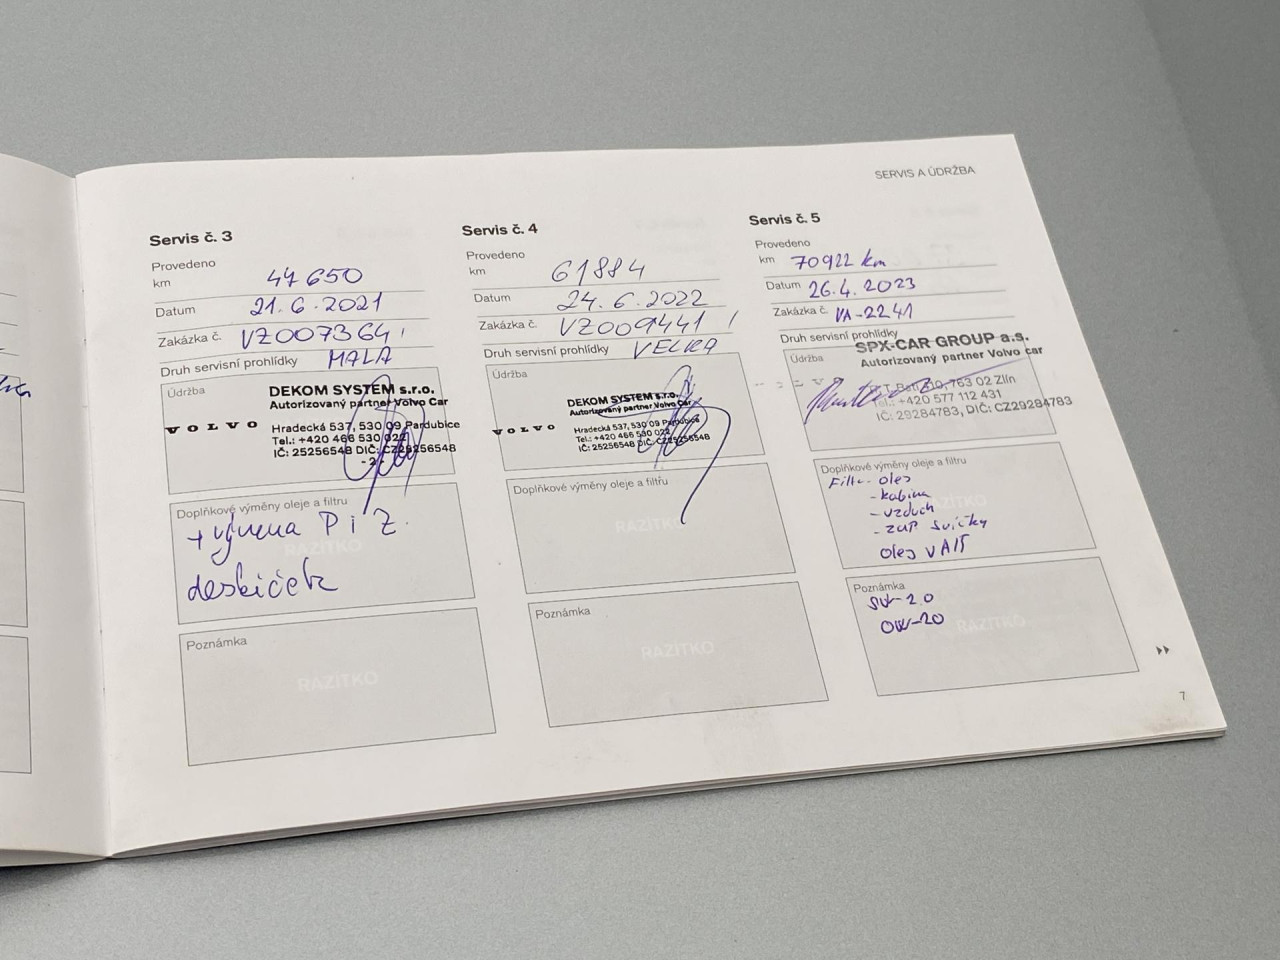 SERVIS A ÚDRŽBA
Servis č. 3
Provedeno
km 47 650
Datum 21.6.2021
Zakázka č. VZ007364
Druh servisní prohlídky MALA
Údržba
DEKOM SYSTEM s.r.o.
Autorizovaný partner Volvo Car
VOLVO
Hradecká 537, 530 09 Pardubice
Tel.: +420 466 530 022
IČ: 25256548 DIČ: CZ25256548
- 2 -
Doplňkové výměny oleje a filtru
+ výmena P i Z.
RAZÍTKO
destiček
Poznámka
RAZÍTKO
Servis č. 4
Provedeno
km 61884
Datum 24.6.2022
Zakázka č. VZ009441
Druh servisní prohlídky VELKA
Údržba
DEKOM SYSTEM s.r.o.
Autorizovaný partner Volvo Car
VOLVO
Hradecká 537, 530 09 Pardubice
Tel.: +420 466 530 022
IČ: 25256548 DIČ: CZ25256548
Doplňkové výměny oleje a filtru
RAZÍTKO
Poznámka
RAZÍTKO
Servis č. 5
Provedeno
km 70922 km
Datum 26.4.2023
Zakázka č. VA-2241
Druh servisní prohlídky
SPX-CAR GROUP a.s.
Údržba
Autorizovaný partner Volvo Car
763 02 Zlín
Tel.: +420 577 112 431
IČ: 29284783, DIČ: CZ29284783
Doplňkové výměny oleje a filtru
Filtr - olej
- kabina
- vzduch
RAZÍTKO
- zap svíčky
olej
Poznámka
2.0
0W-20
RAZÍTKO
7